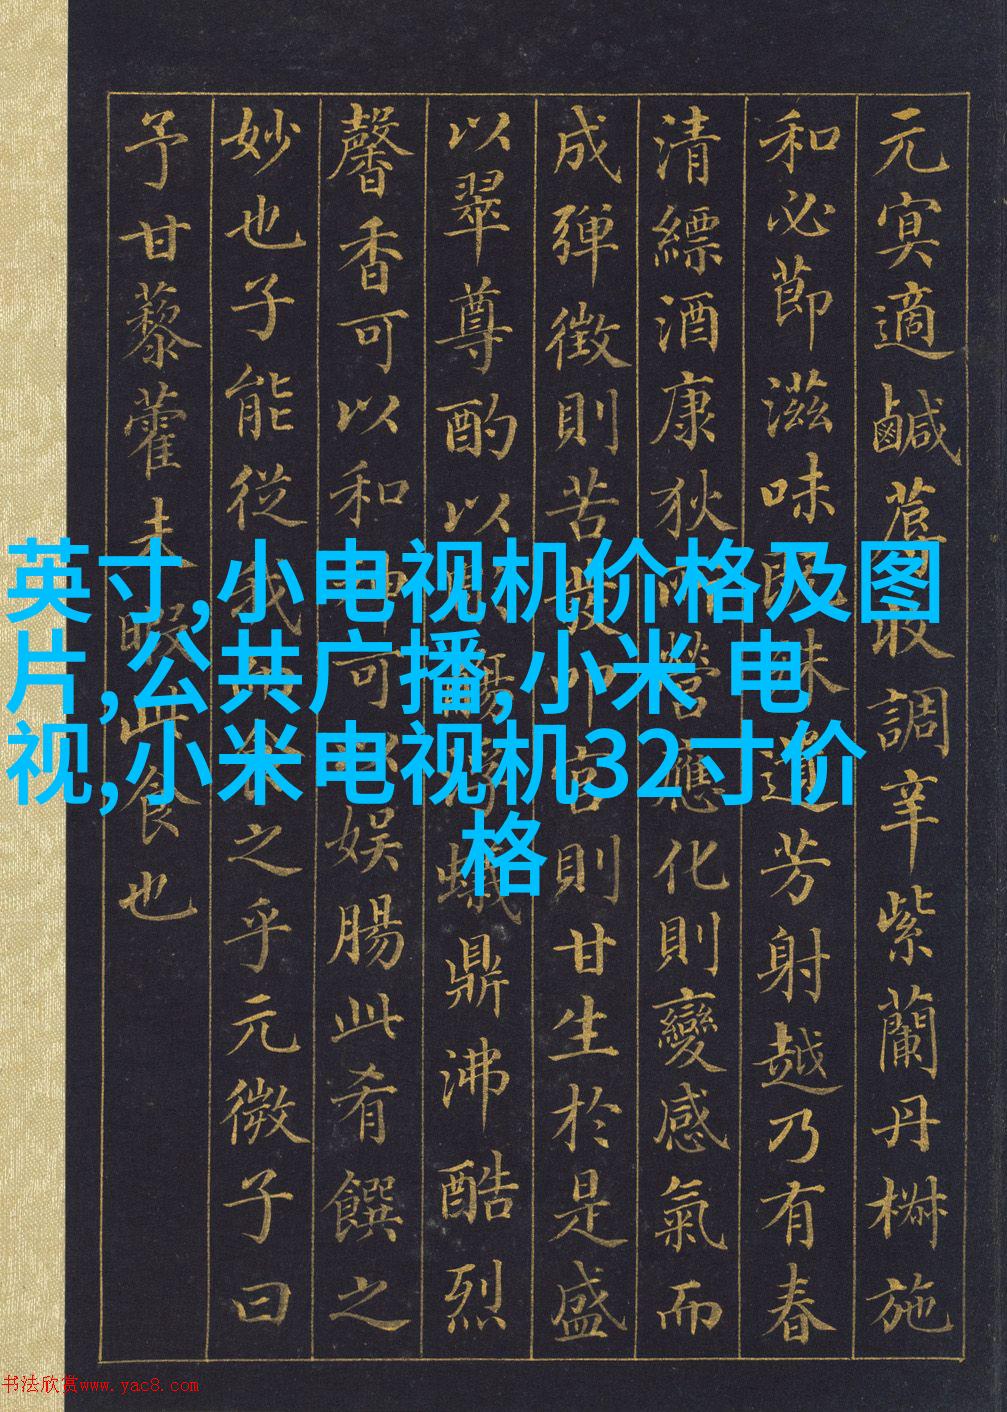 元冥適鹹蓐收調辛紫蘭丹椒施
和必節滋味既殊遺芳射越乃有春
清縹酒康狄所營應化則變感氣而
成弹徵則苦發叩宮則甘生於是盛
以翠尊酌以觴浮蟻鼎沸酷烈
馨香可以和神可娛腸此肴饌之
妙也子能從我食之乎元微子曰
予甘藜藿未暇此食也
英寸,小电视机价格及图
片,公共广播,小米 电
视,小米电视机32寸价
格
书法欣赏www.yac8.com